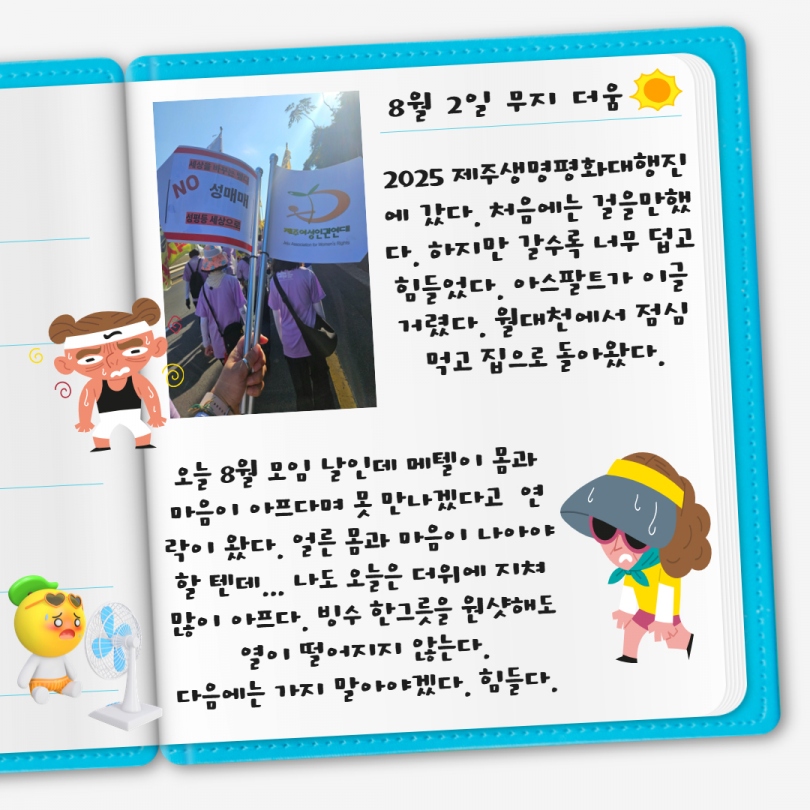 8월 2일 무지 더움
2025 제주생명평화대행진
에 갔다. 처음에는 걸을만했
다. 하지만 갈수록 너무 덥고
힘들었다. 아스팔트가 이글
거렸다. 월대천에서 점심
먹고 집으로 돌아왔다.
NO
성매매
성평등 세상으로
제주여성인권연대
오늘 8월 모임 날인데 메텔이 몸과
마음이 아프다며 못 만나겠다고 연
락이 왔다. 얼른 몸과 마음이 나아야
할 텐데... 나도 오늘은 더위에 지쳐
많이 아프다. 빙수 한그릇을 원샷해도
열이 떨어지지 않는다.
다음에는 가지 말아야겠다. 힘들다.